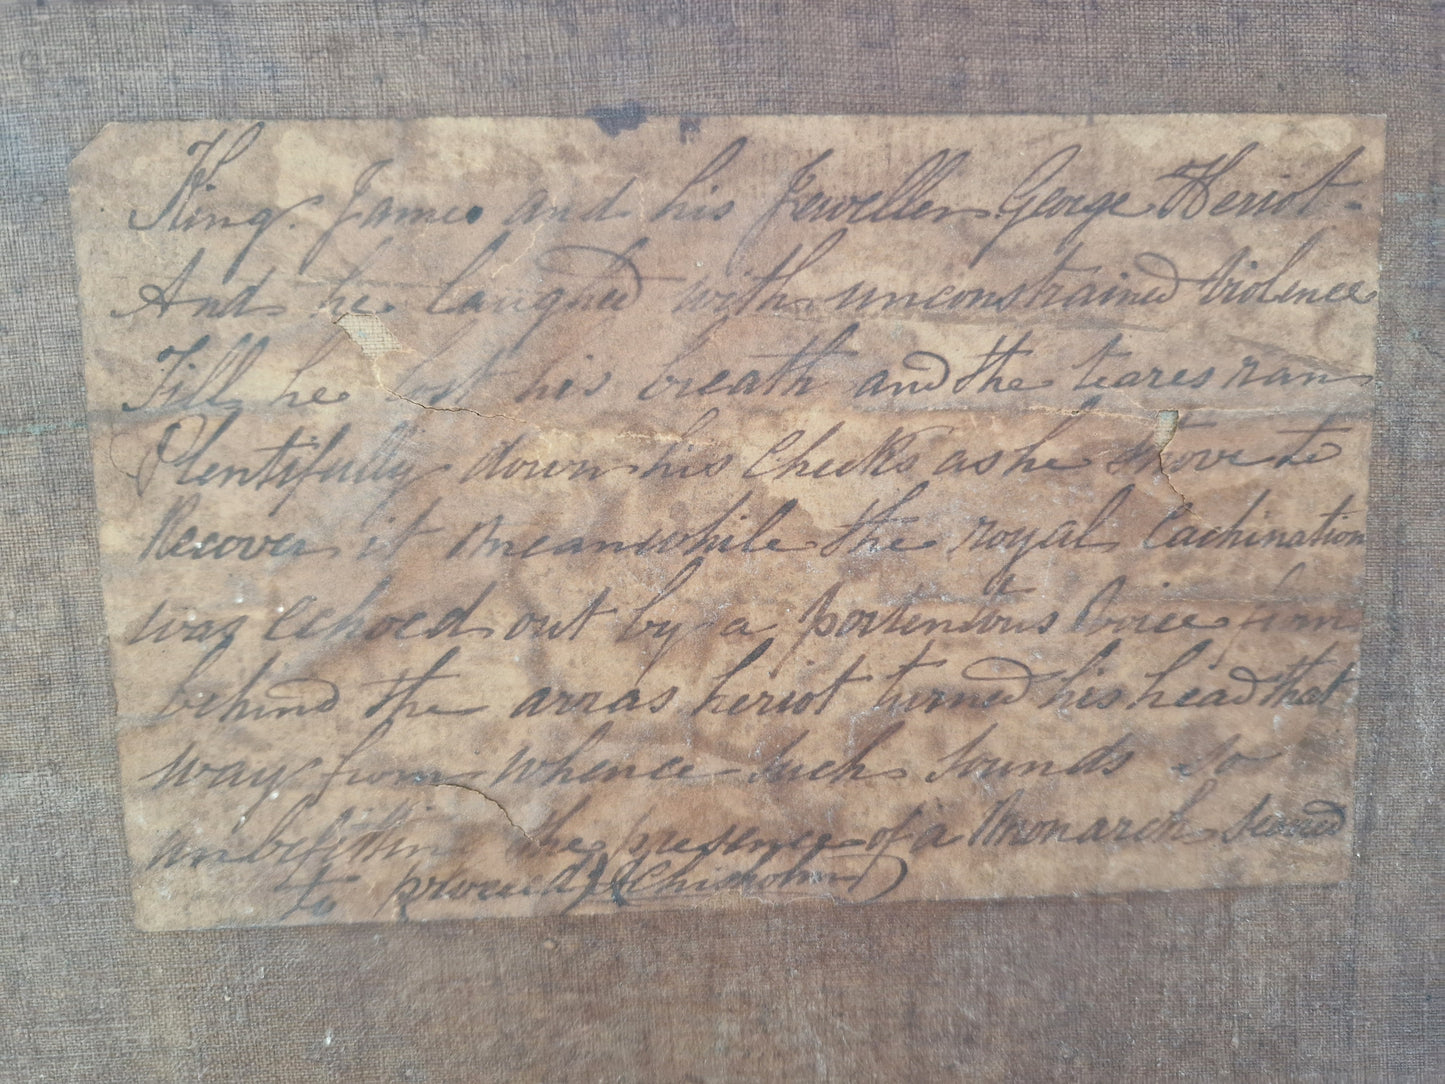 King James and his Jeweller George Heriot -
And he laughed with unconstrained Violence
Till he lost his breath and the teares ran
Plentifully down his Cheeks as he strove to
Recover it Meanwhile the royal Cachination
was echoed out by a portentous Voice from
behind the arras heriot turned his head that
way from whence such Sounds so
unbefitting the presence of a Monarch seemed
to proceed A Chisholm